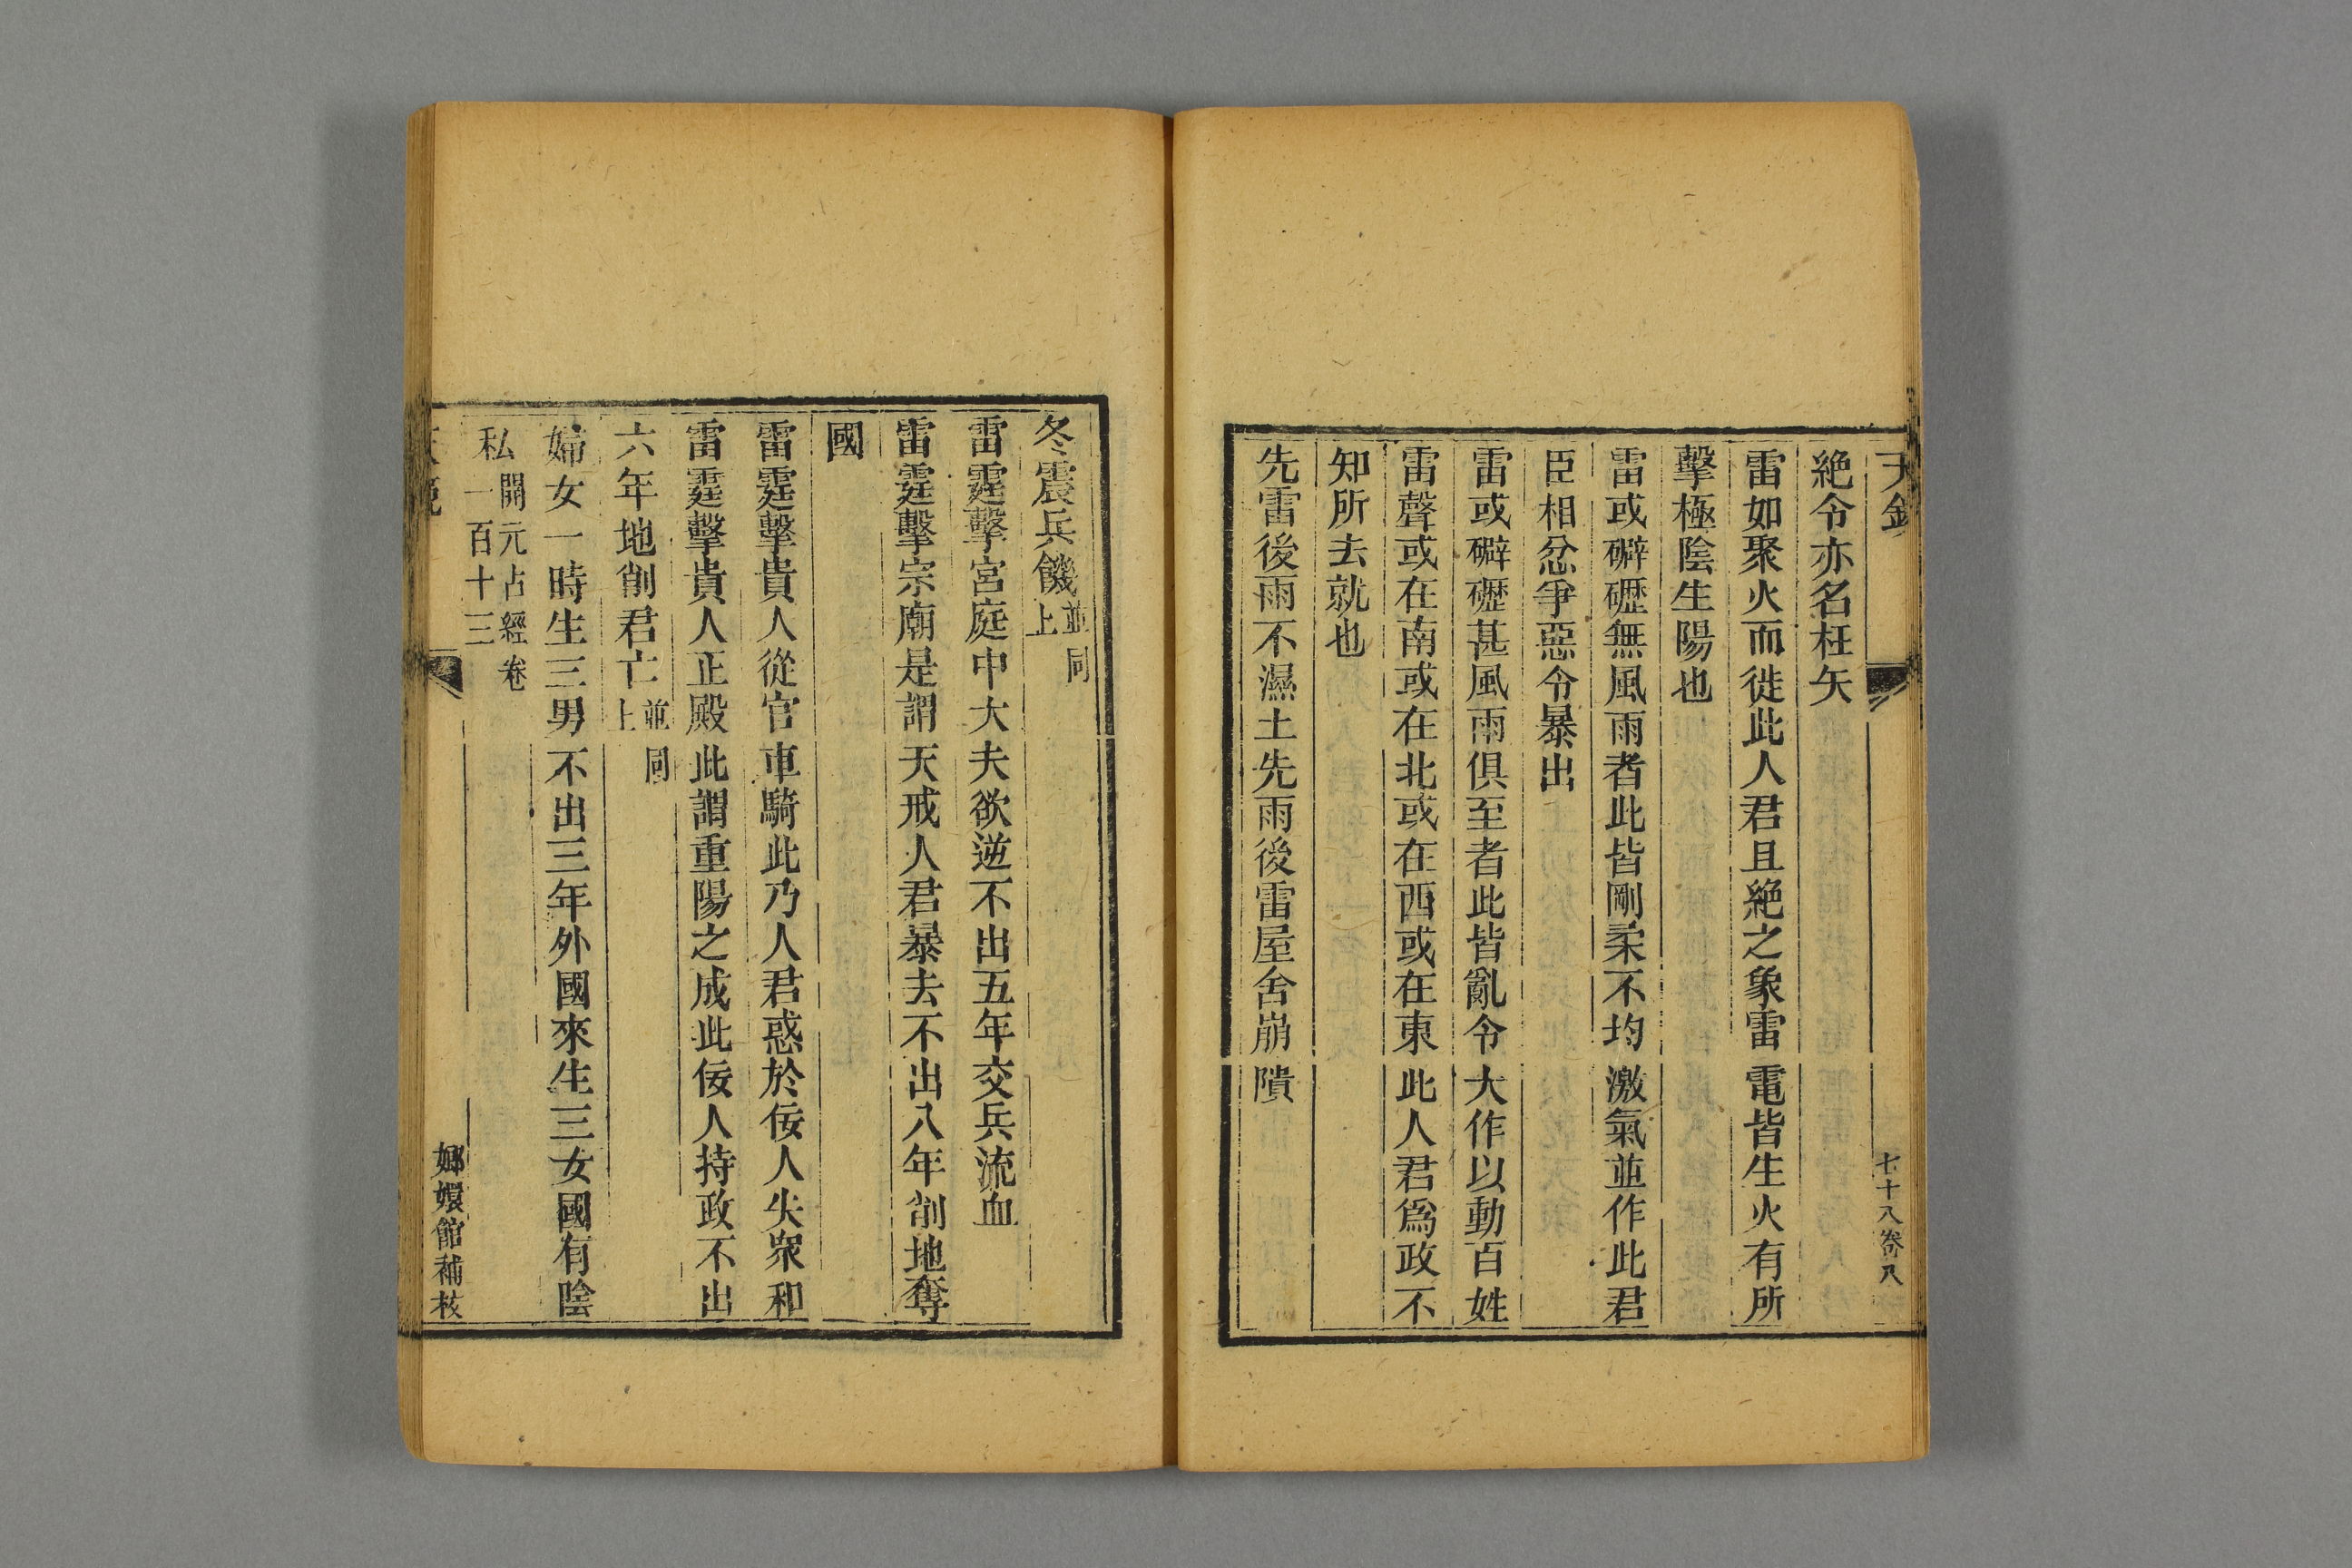 絶令亦名枉矢
雷如聚火而徙此人君且絶之象雷電皆生火有所
擊極陰生陽也
雷或礔礰無風雨者此皆剛柔不均激氣並作此君
臣相忿爭惡令暴出
雷或礔礰甚風雨俱至者此皆亂令大作以動百姓
雷聲或在南或在北或在西或在東此人君爲政不
知所去就也
先雷後雨不濕土先雨後雷屋舍崩隤
七十八卷八
冬震兵饑並同上
雷霆擊宮庭中大夫欲逆不出五年交兵流血
雷霆擊宗廟是謂天戒人君暴去不出八年削地奪
國
雷霆擊貴人從官車騎此乃人君惑於佞人失衆和
雷霆擊貴人正殿此謂重陽之成此佞人持政不出
六年地削君亡並同上
婦女一時生三男不出三年外國來生三女國有陰
私開元占經卷一百十三
嫏嬛館補校